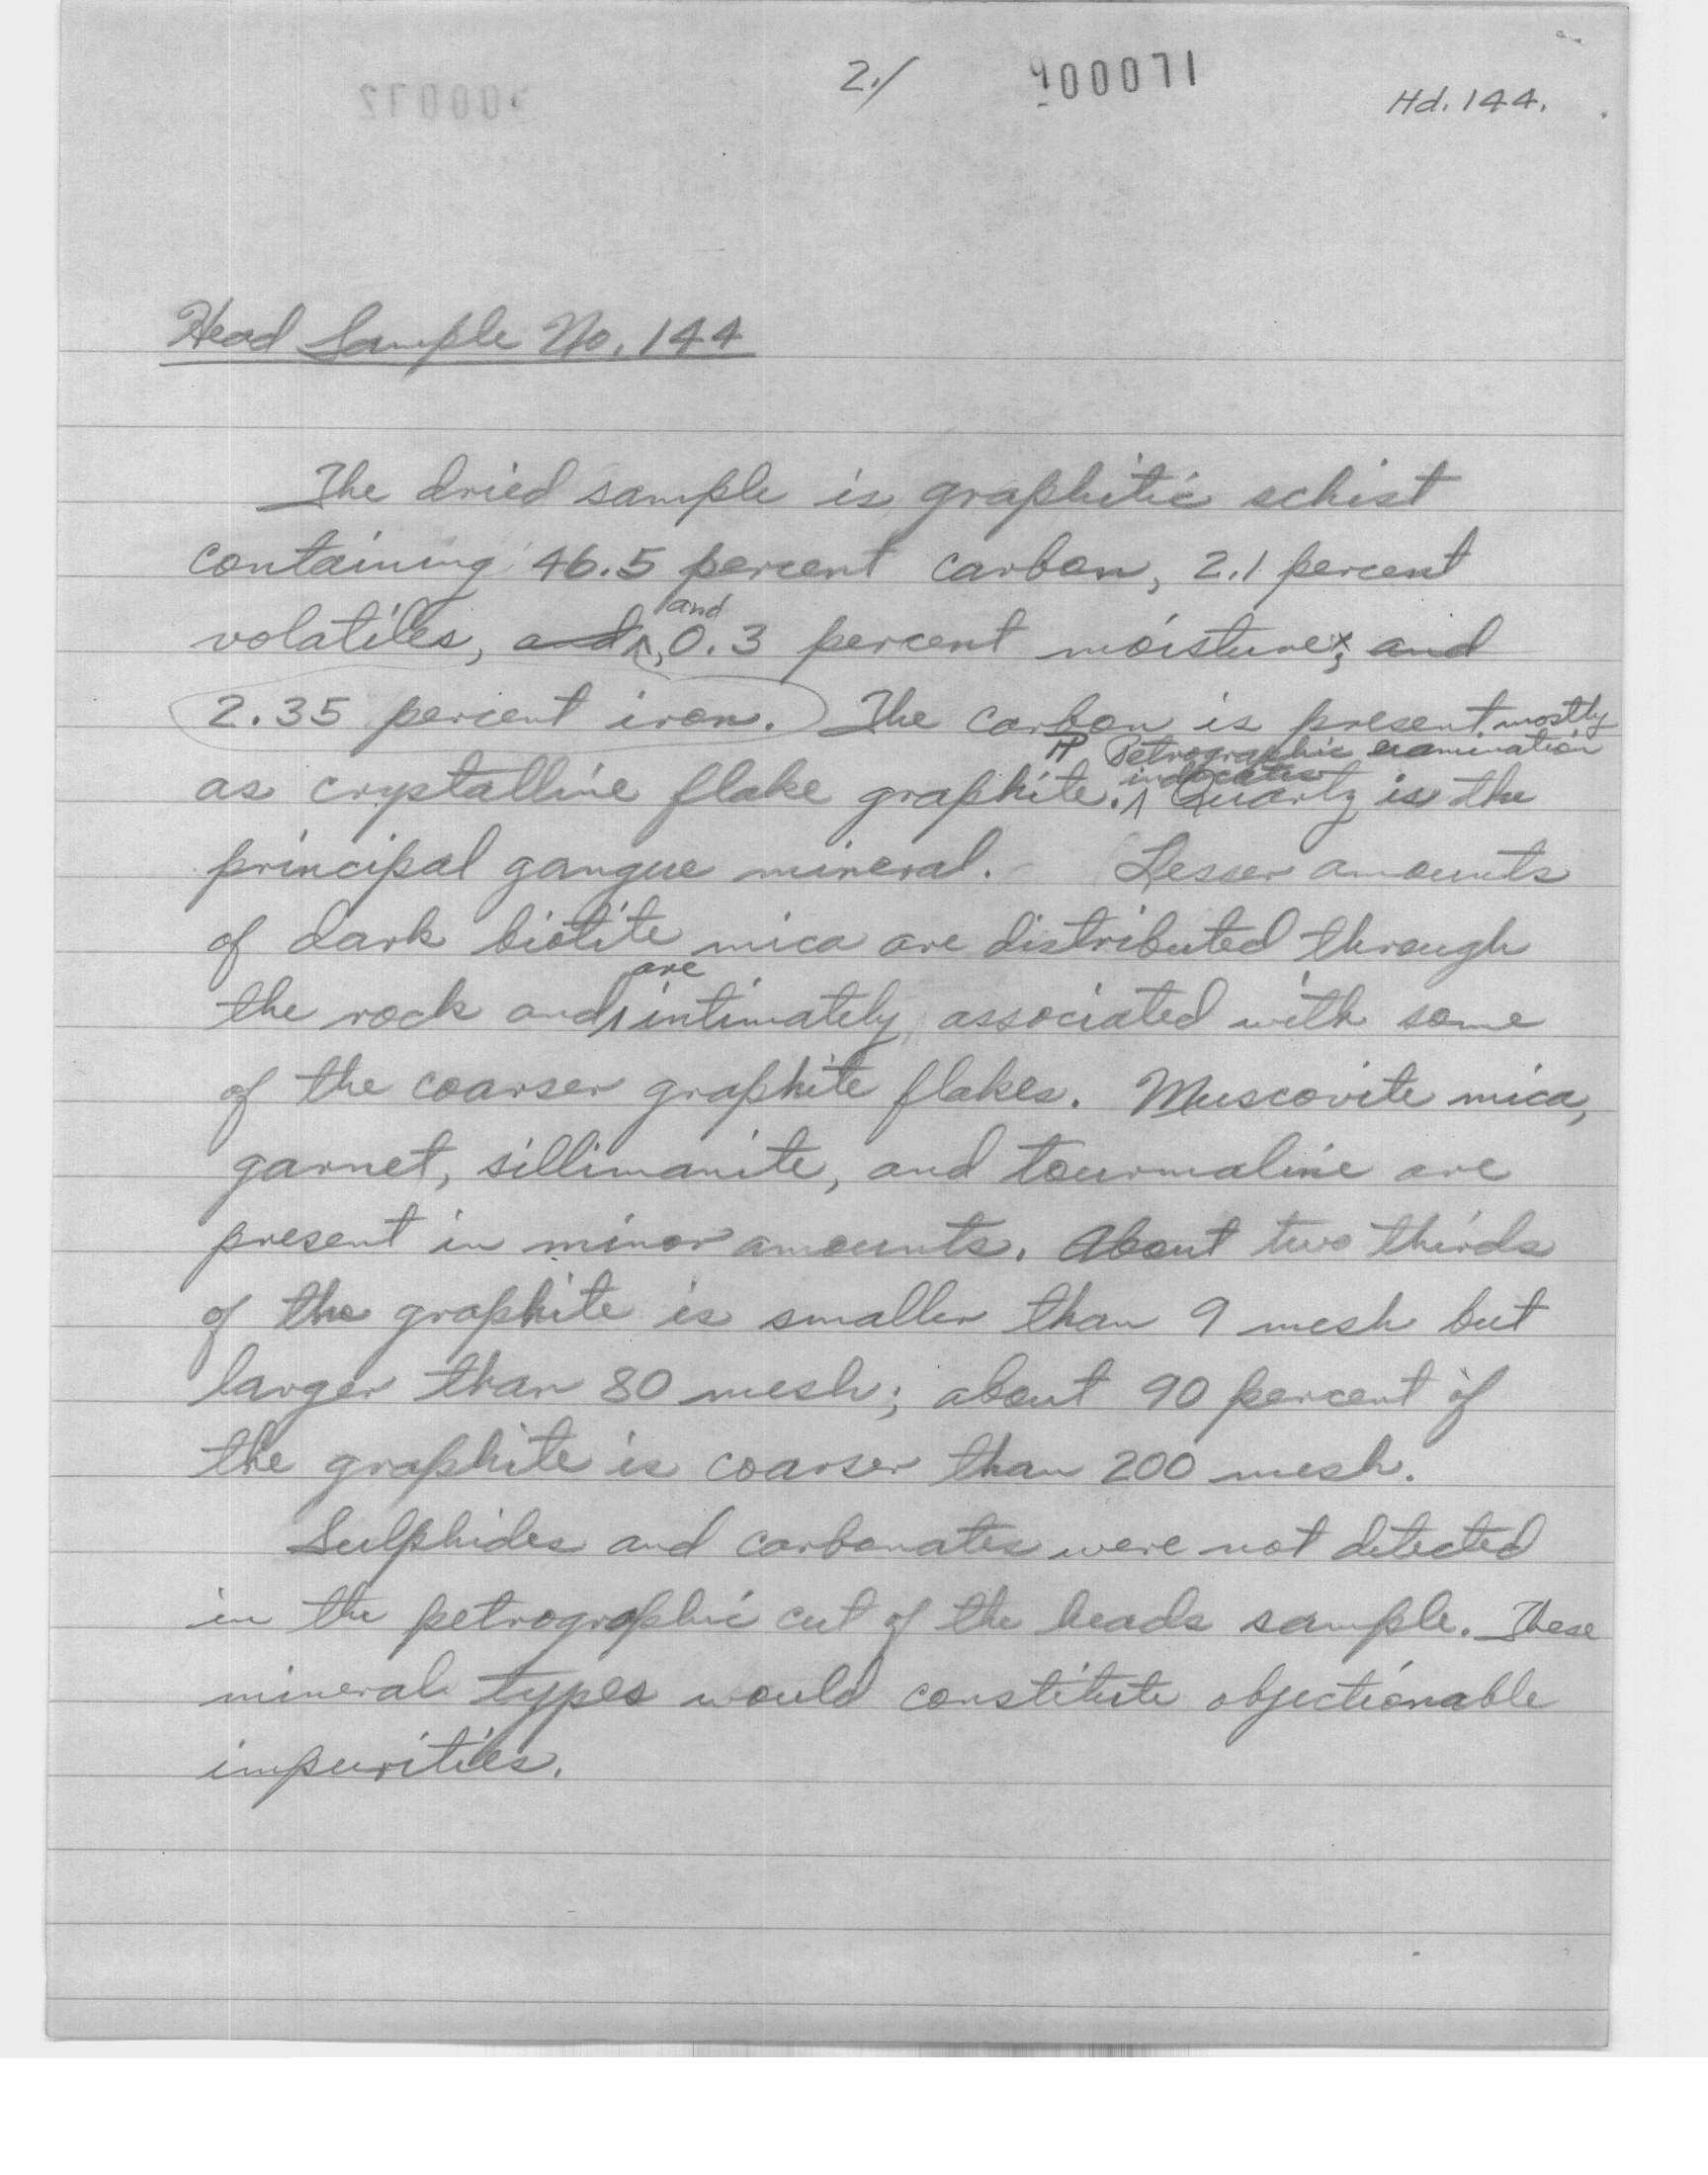 2./
900071
Hd. 144.
Head Sample No. 144
The dried sample is graphitic schist
containing 46.5 percent carbon, 2.1 percent
and
volatiles, and, 0.3 percent moisture; and
2.35 percent iron. The carbon is present mostly
Petrographic examination
indicates
as crystalline flake graphite. Quartz is the
principal gangue mineral. Lesser amounts
of dark biotite mica are distributed through
are
the rock and intimately associated with some
of the coarser graphite flakes. Muscovite mica,
garnet, sillimanite, and tourmaline are
present in minor amounts. About two thirds
of the graphite is smaller than 9 mesh but
larger than 80 mesh; about 90 percent of
the graphite is coarser than 200 mesh.
Sulphides and carbonates were not detected
in the petrographic cut of the heads sample. These
mineral types would constitute objectionable
impurities.